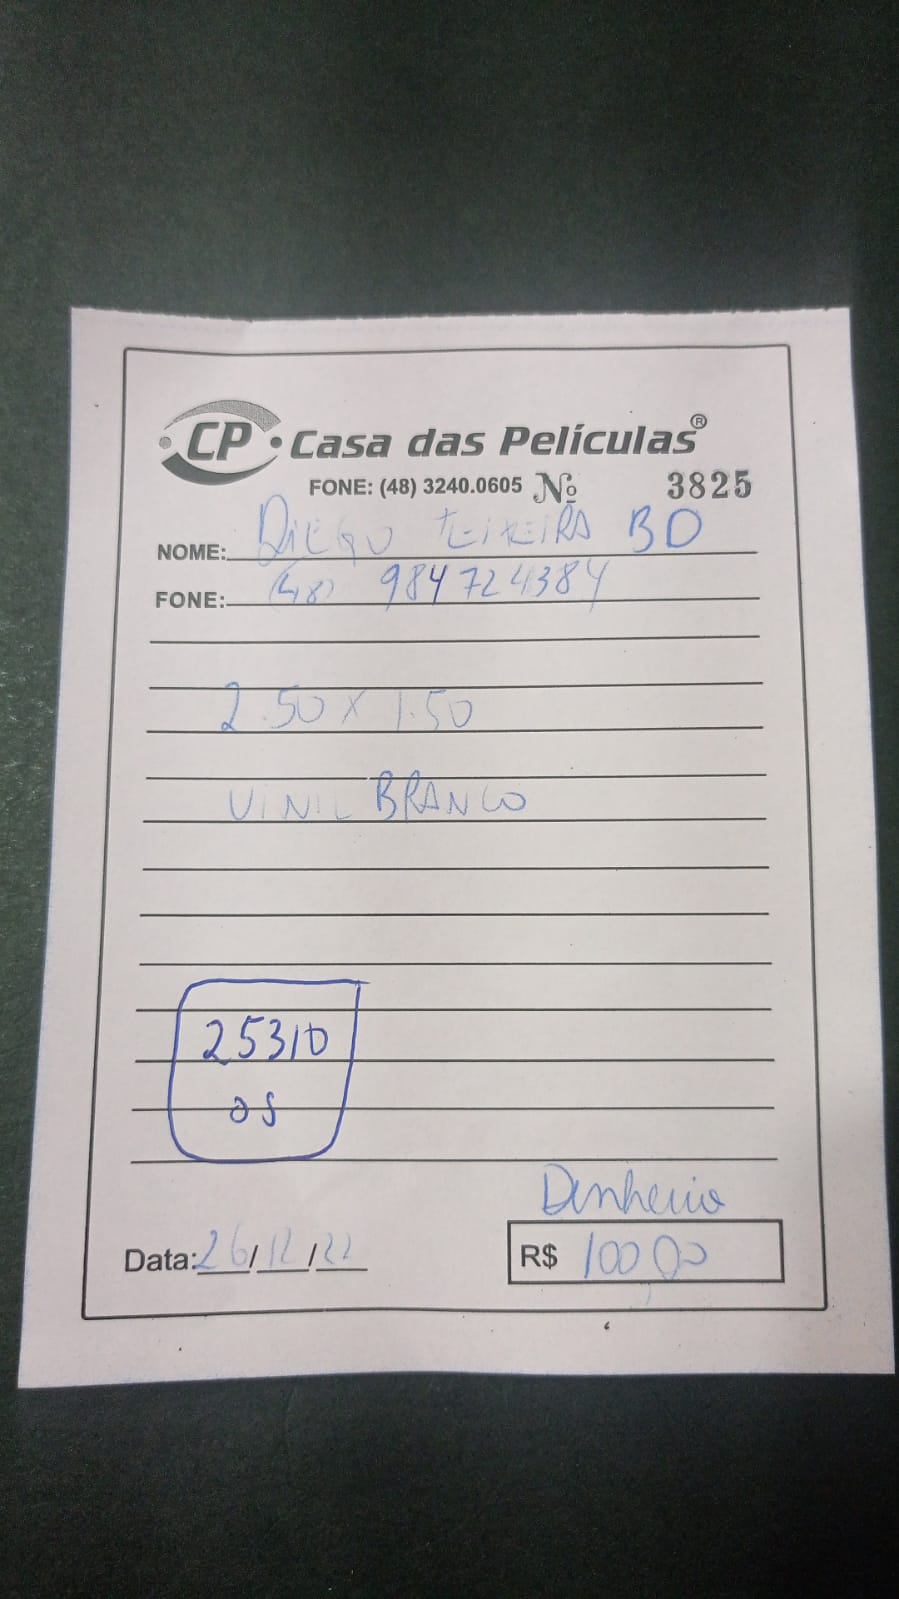 CP Casa das Películas®
FONE: (48) 3240.0605 Nº 3825
NOME: DIEGO TEIXEIRA BD
FONE: (48) 984724384
2.50 X 1.50
VINIL BRANCO
25310
OS
Dinheiro
Data: 26/12/22 R$ 100,00